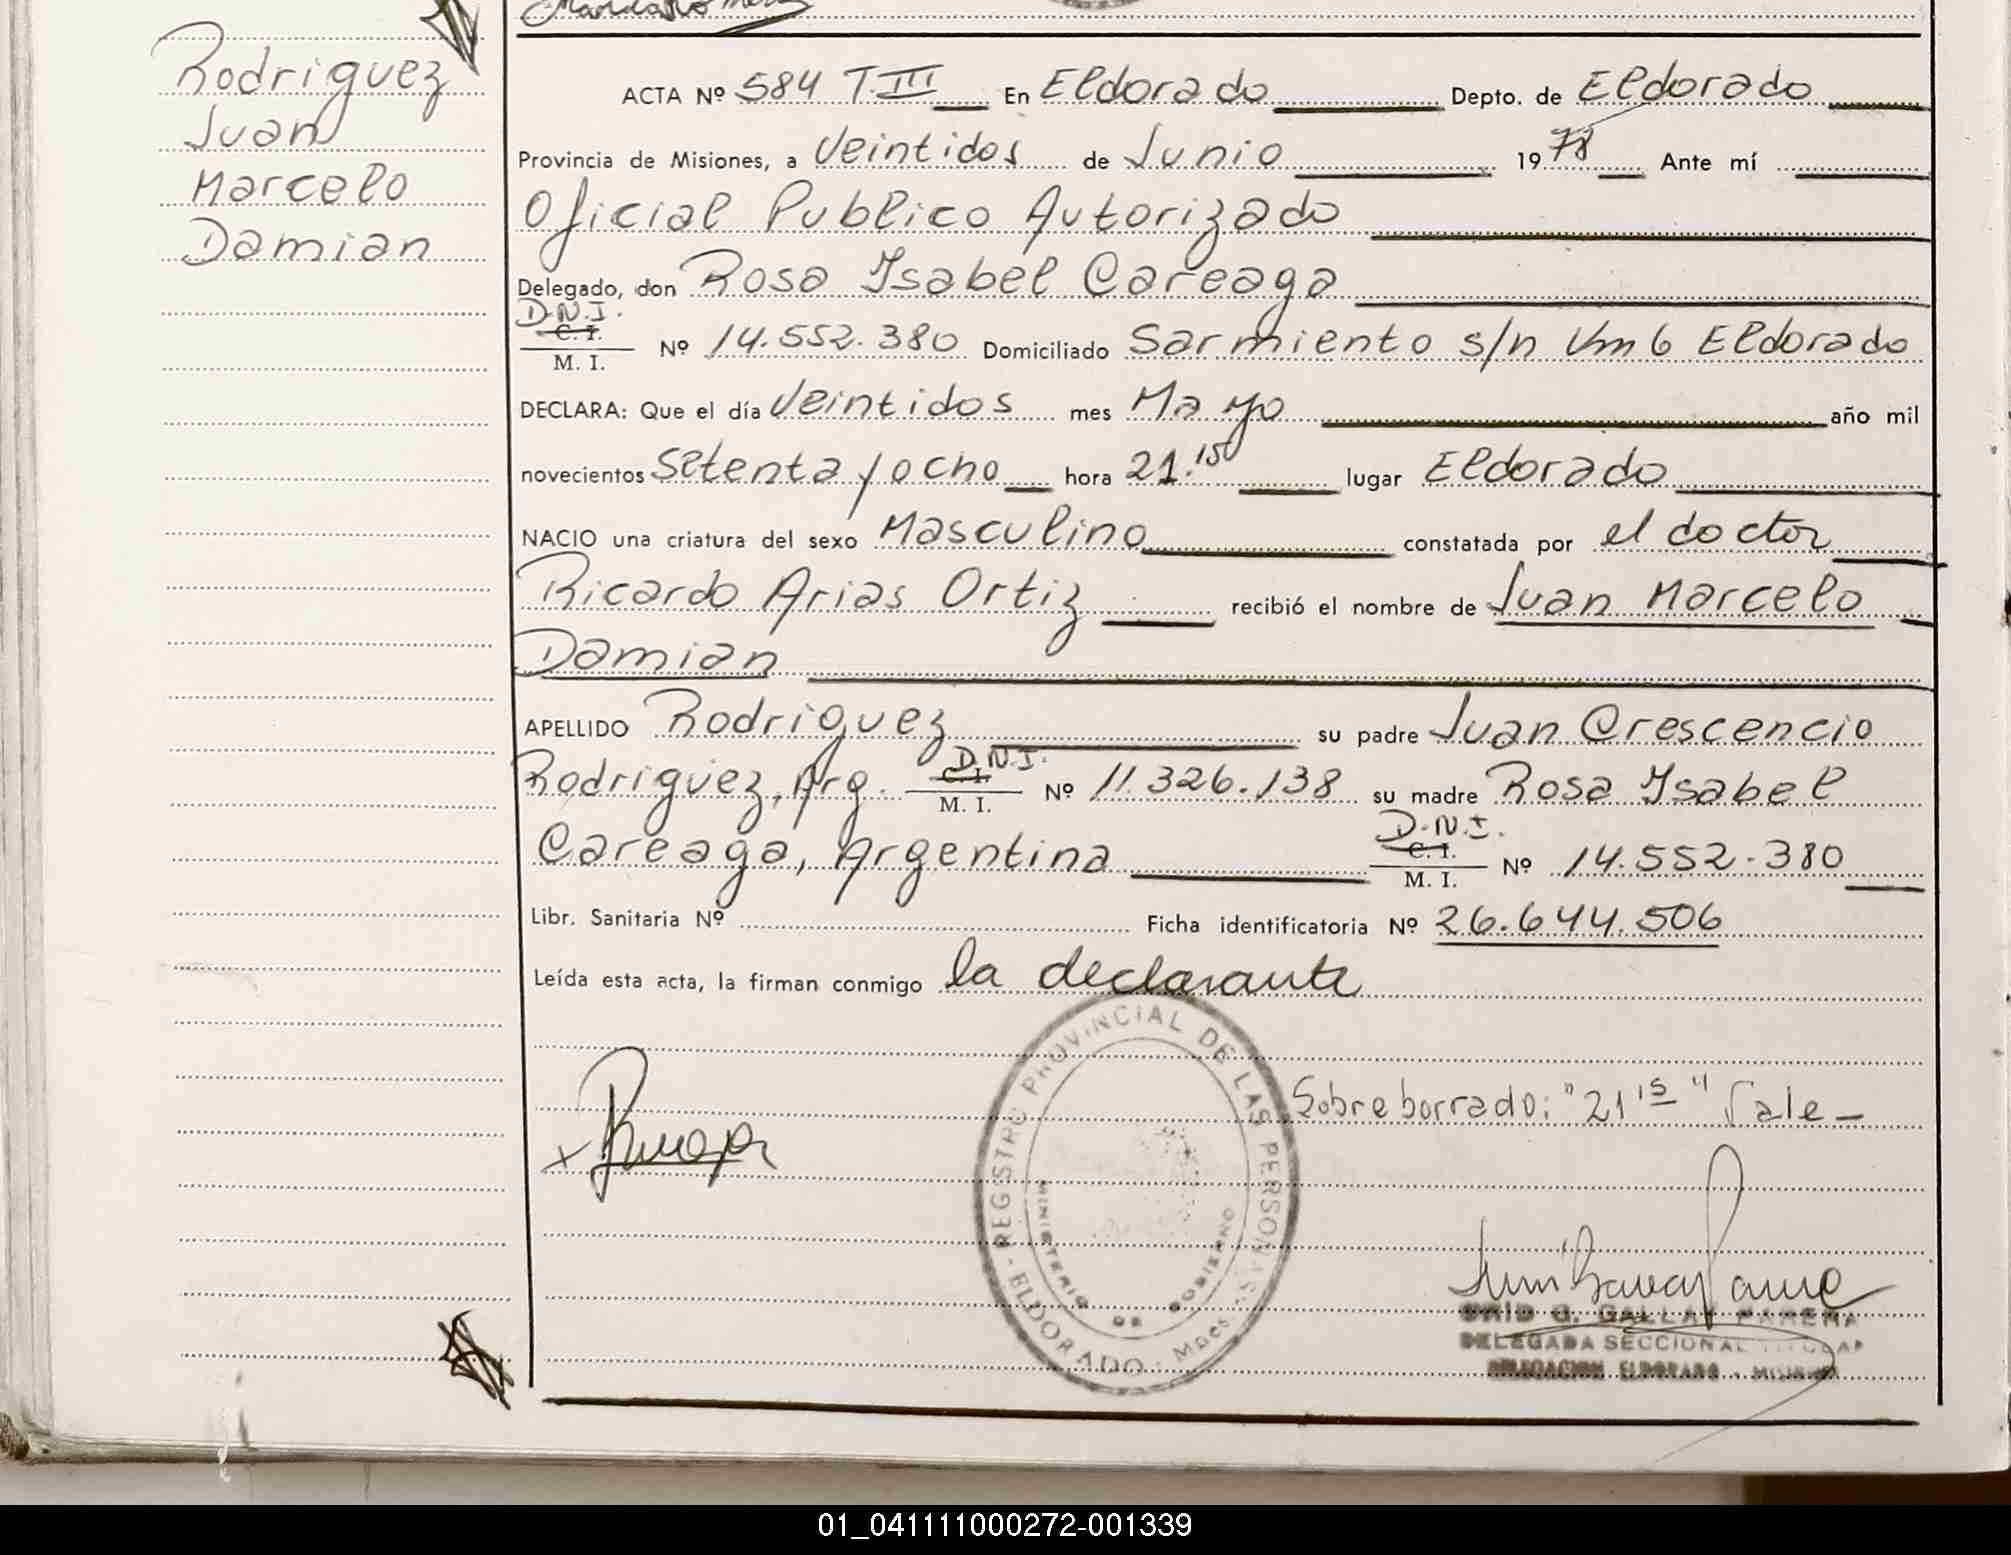 Rodriguez
Juan
Marcelo
Damian
ACTA Nº 584 T.III En Eldorado Depto. de Eldorado
Provincia de Misiones, a Veintidos de Junio 1978 Ante mí
Oficial Publico Autorizado
Delegado, don Rosa Isabel Careaga
D.N.I.
C. I.
M. I. Nº 14.552.380 Domiciliado Sarmiento s/n Km 6 Eldorado
DECLARA: Que el día Veintidos mes Mayo año mil
novecientos Setenta y ocho hora 21.15 lugar Eldorado
NACIO una criatura del sexo Masculino constatada por el doctor
Ricardo Arias Ortiz recibió el nombre de Juan Marcelo
Damian
APELLIDO Rodriguez su padre Juan Crescencio
D.N.I.
Rodriguez, Arg. C. I. M. I. Nº 11.326.138 su madre Rosa Isabel
D.N.I.
Careaga, Argentina C. I. M. I. Nº 14.552.380
Libr. Sanitaria Nº Ficha identificatoria Nº 26.644.506
Leída esta acta, la firman conmigo la declarante
REGISTRO PROVINCIAL DE LAS PERSONAS
MINISTERIO DE GOBIERNO
ELDORADO - Mnes.
Sobreborrado: "21 15" Vale -
G. GALLAY PARERA
DELEGADA SECCIONAL
DELEGACION ELDORADO - MISIONES
01_041111000272-001339